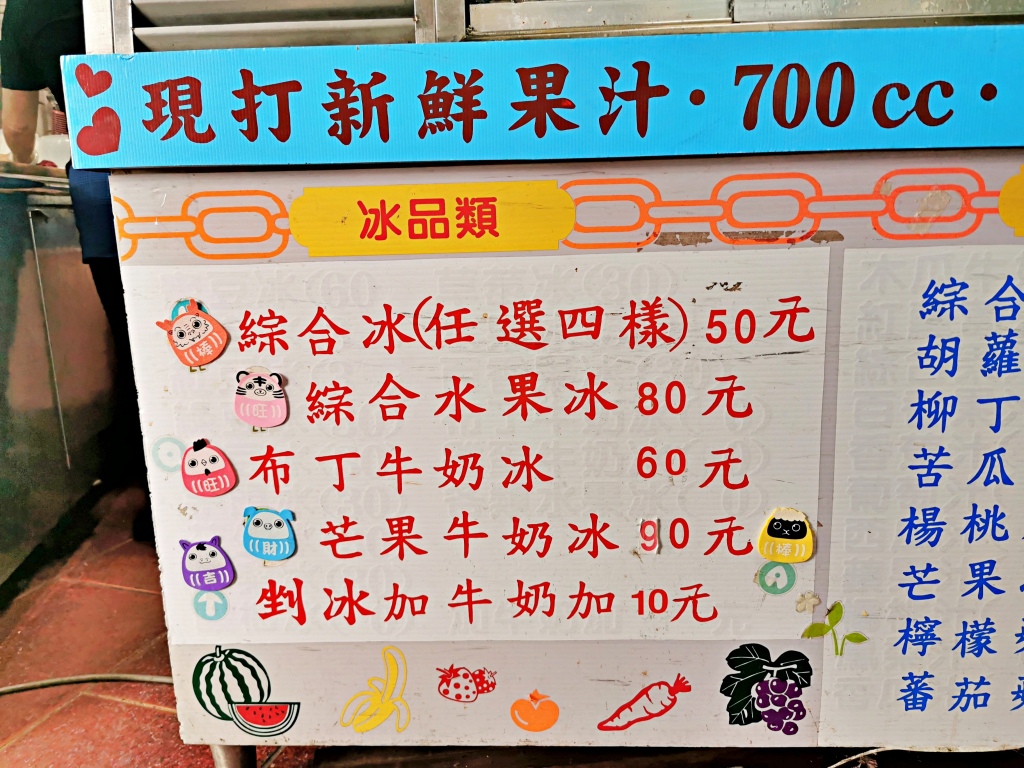 現打新鮮果汁·700cc·
冰品類
綜合冰(任選四樣)50元
綜合水果冰80元
布丁牛奶冰 60元
芒果牛奶冰90元
剉冰加牛奶加10元
棒
旺
旺
財
吉
棒
綜合
胡蘿
柳丁
苦瓜
楊桃
芒果
檸檬
蕃茄